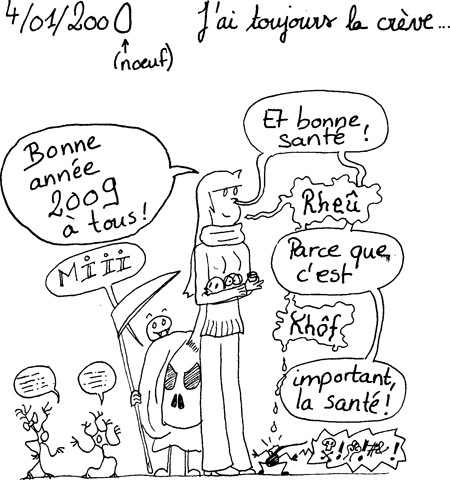 4/01/2000
(nœuf)
J'ai toujours la crève...
Bonne
année
2009
à tous !
Miiii
Et bonne
santé !
Rheû
Parce que,
c'est
Khôf
important,
la santé !
!?!#& !